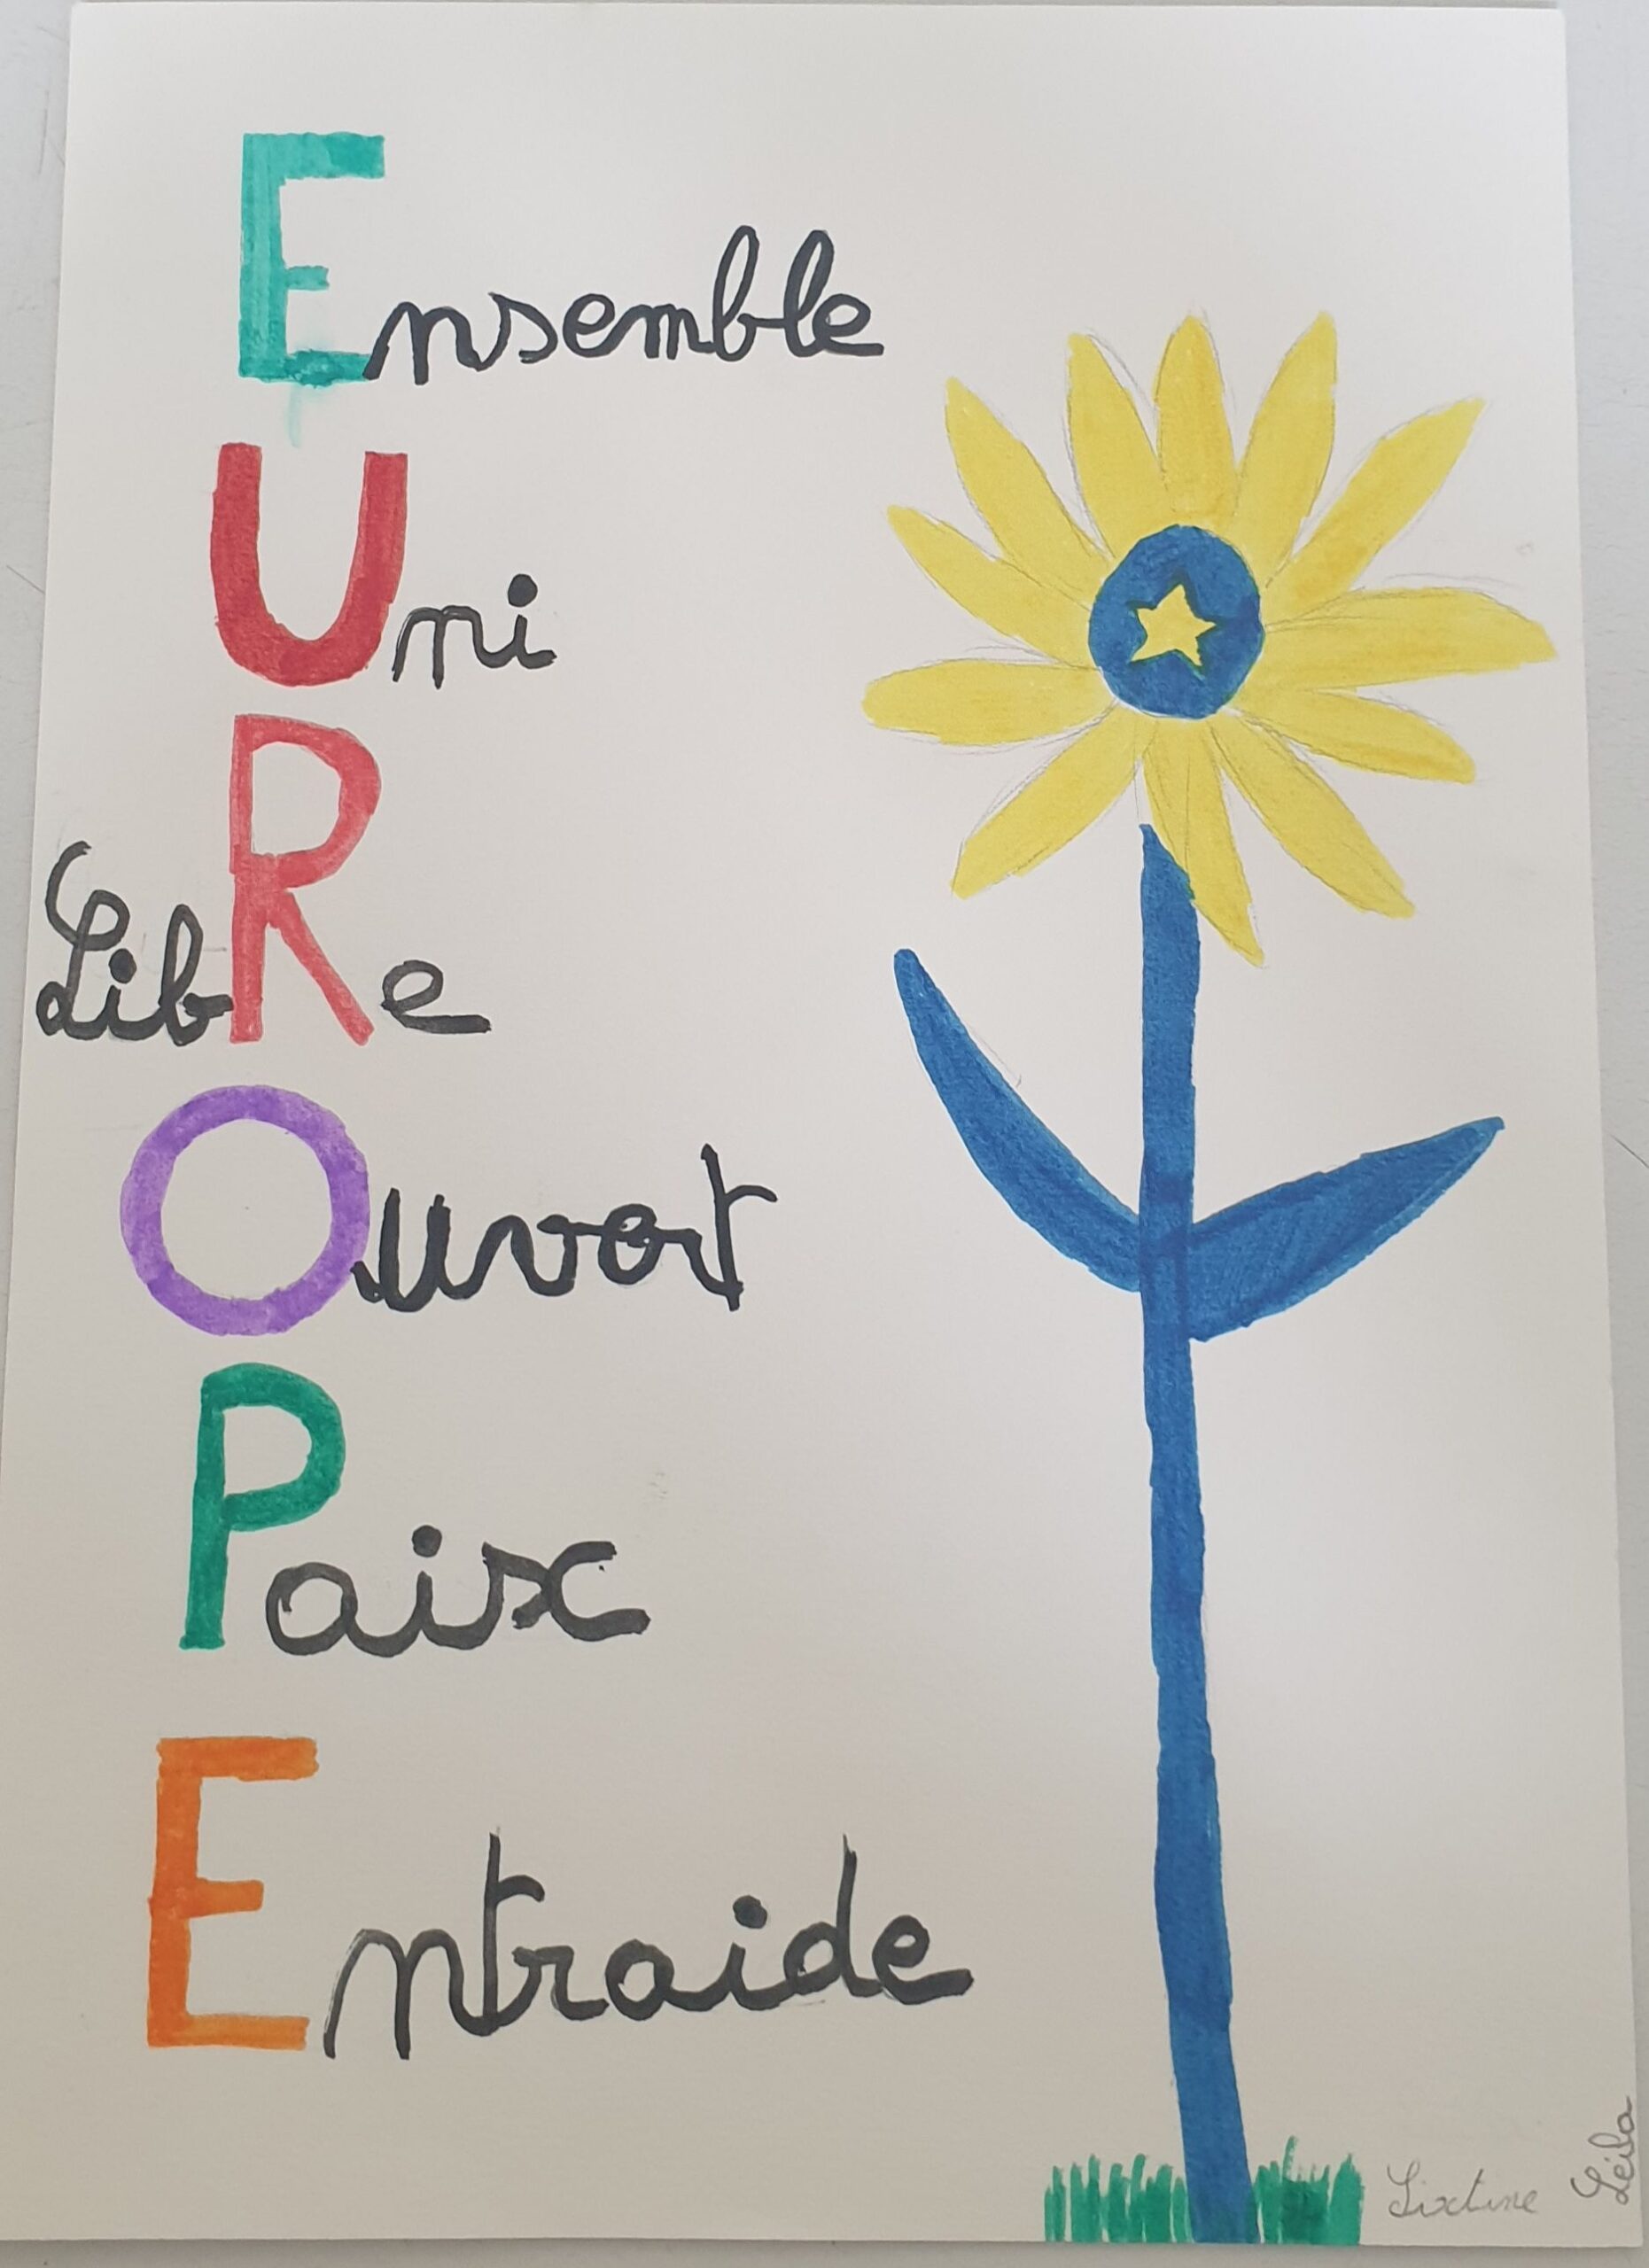 Ensemble
Uni
LibRe
Ouvert
Paix
Entraide
Sixtine
Léila